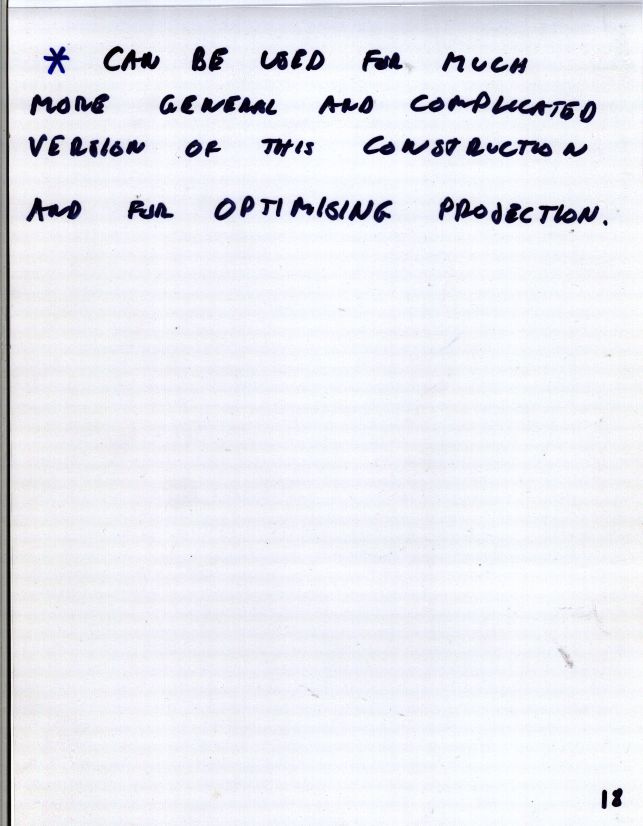 * CAN BE USED FOR MUCH
MORE GENERAL AND COMPLICATED
VERSION OF THIS CONSTRUCTION
AND FOR OPTIMISING PROJECTION.
18